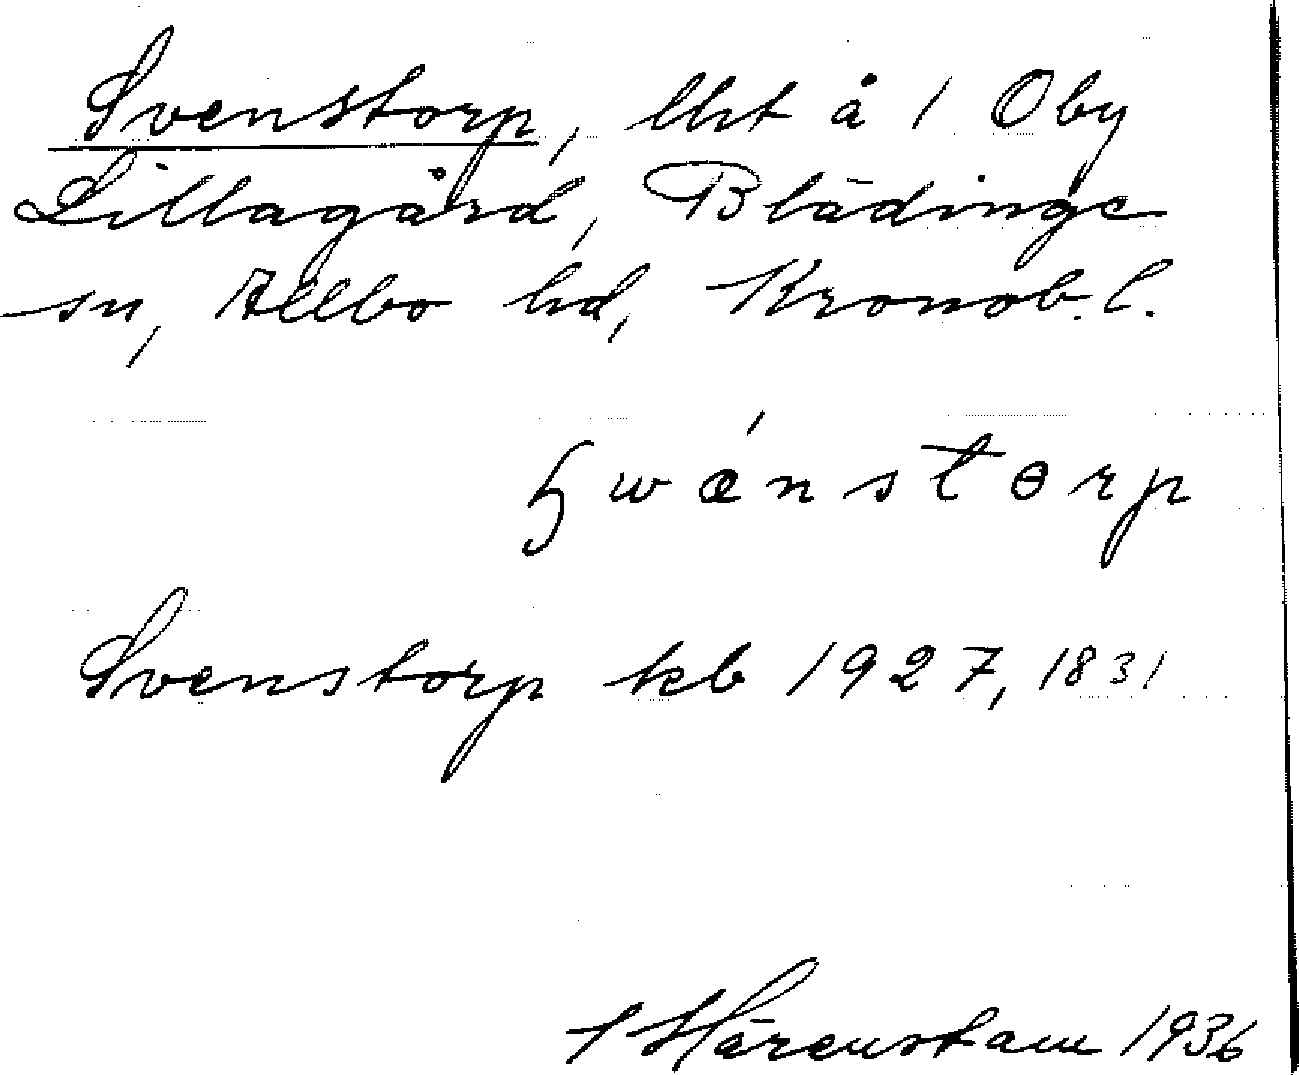 Svenstorp, lht å 1 Oby
Lillagård, Blädinge
sn, Allbo hd, Kronob. l.
Svenstorp kb 1927, 1831
Härenstam 1936